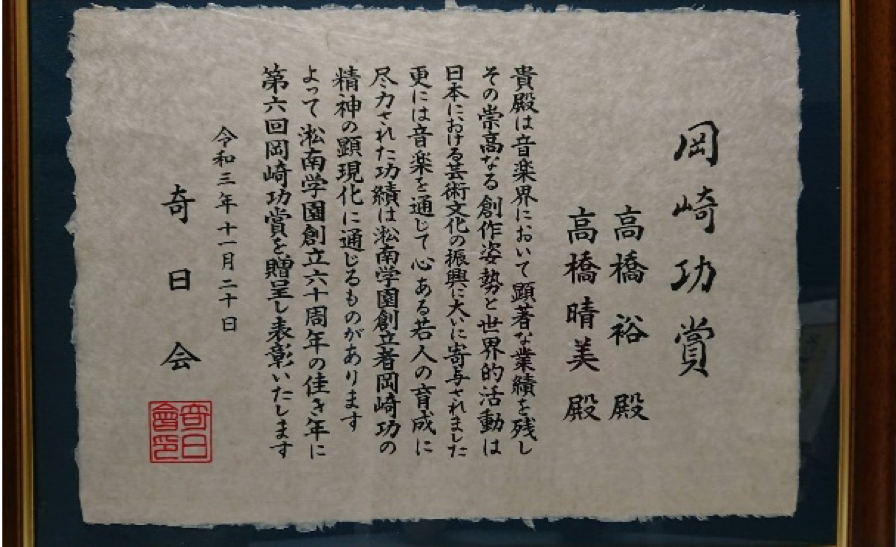 岡崎功賞
高橋裕殿
高橋晴美殿
貴殿は音楽界において顕著な業績を残し
その崇高なる創作姿勢と世界的活動は
日本における芸術文化の振興に大いに寄与されました
更には音楽を通じて心ある若人の育成に
尽力された功績は淞南学園創立者岡崎功の
精神の顕現化に通じるものがあります
よって淞南学園創立六十周年の佳き年に
第六回岡崎功賞を贈呈し表彰いたします
令和三年十一月二十日
奇日会
奇日
會印